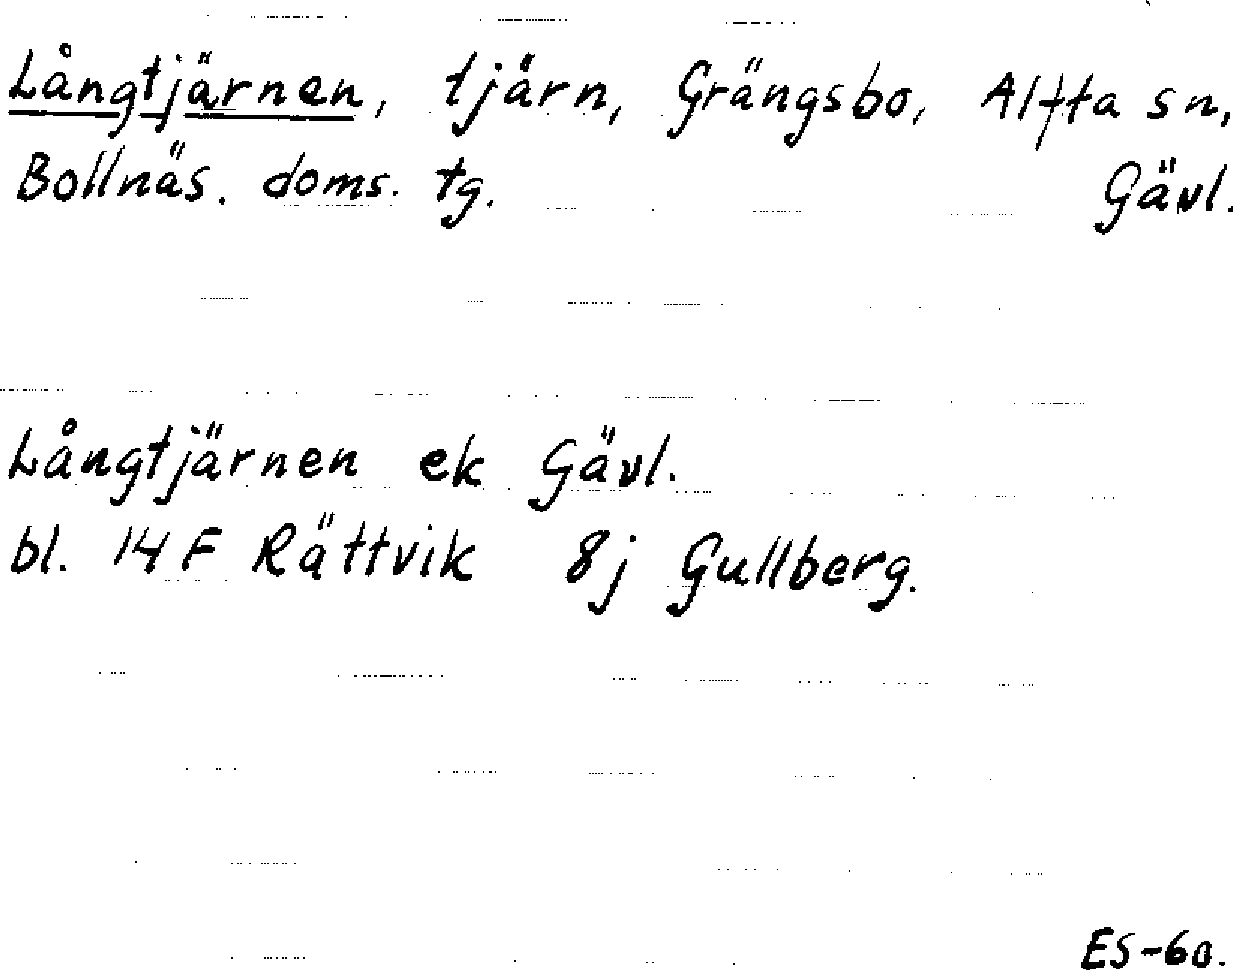 Långtjärnen, tjärn, Grängsbo, Alfta sn,
Bollnäs. doms. tg. Gävl.
Långtjärnen ek Gävl.
bl. 14 F Rättvik 8j Gullberg.
ES-60.